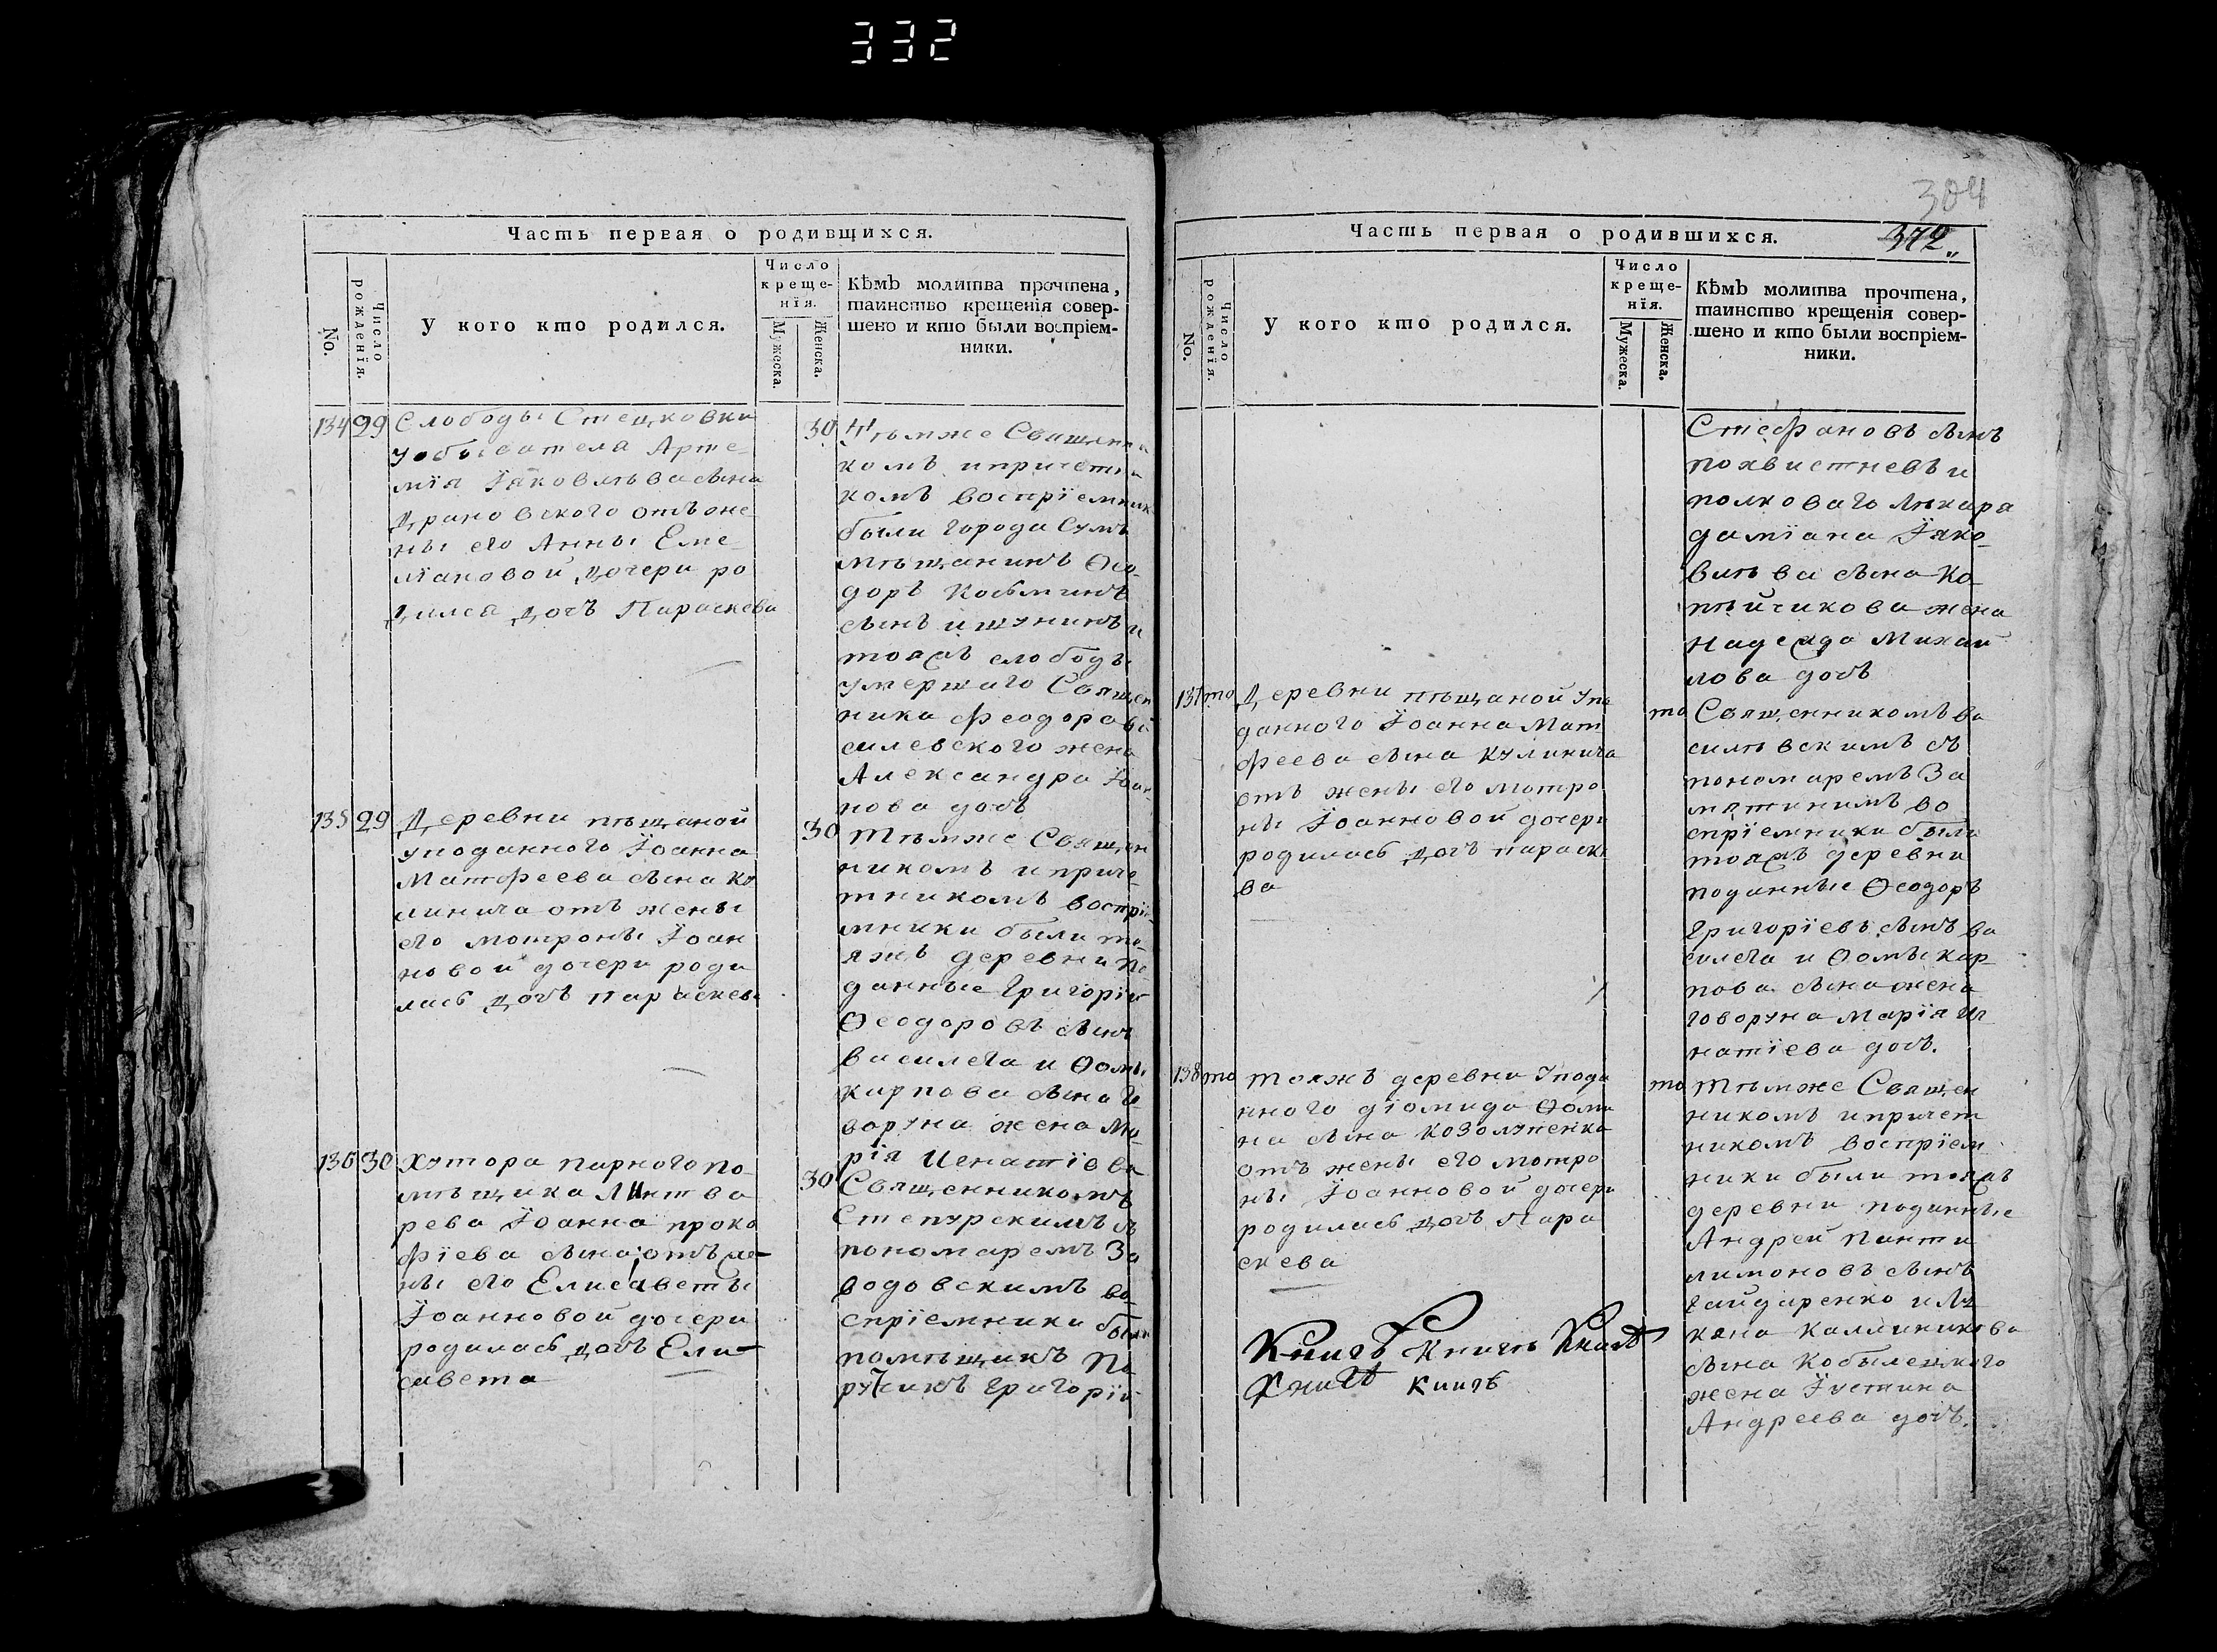 332
Часть первая о родивщихся.
No.
Число рожденїя.
У кого кто родился.
Число креще-нїя.
Мужеска.
Женска.
Кѣмъ молитва прочтена,
таинство крещенія совер-
шено и кто были воспріем-
ники.
134 29 Слободы Стецковки
у обывателя Арте-
мїя Їаковлѣва сына
отъ же-
ны его Анны Еме-
лїановой дочери ро
дилса дочъ Параскева
30 Тѣмже Священни
комъ и причетни
комъ воспрїемник
были города Сумъ
мѣщанинъ Ѳео-
доръ Косминъ
сынъ и
тояжъ слободы
умершаго Священ
ника Феодора Ва
силевского жена
Александра Їоан-
нова дочъ
135 29 Деревни пѣщаной
у поданного Їоанна
Матфеева сына Ку
линича отъ жены
его мотроны Їоан
новой дочери роди
лась дочъ параскева
30 Тѣмже Священ
никомъ и приче-
тникомъ воспрїе-
мники были то-
яжъ деревни по-
данные Григорїй
Ѳеодоровъ сынъ
василега и Ѳомы
карпова сына Го
воруна жена Ма-
рїя Игнатїева
136 30 Хутора парного по-
мѣщика Линтва
рева Їоанна проко
фїева сына отъ же-
ны его Елисаветы
Їоанновой дочери
родилась дочъ Ели-
савета
30 Священникомъ
Степурскимъ съ
пономаремъ За
водовскимъ во-
спрїемники были
помѣщикъ По
ручикъ Григорїй
304
372
Часть первая о родившихся.
No.
Число рожденїя.
У кого кто родился.
Число креще-нїя.
Мужеска.
Женска.
Кѣмъ молитва прочтена,
таинство крещенія совер-
шено и кто были воспріем-
ники.
Стефановъ сынъ
похвистневъ и
полковаго лѣкаря
дамїана Їако-
влѣва сына Ко-
пѣйчикова жена
Надежда Михай
лова дочъ
137 то Деревни пѣщаной у по
данного Їоанна Мат
феева сына Кулинича
отъ жены его мотро
ны Їоанновой дочери
родилась дочъ параске
ва
то Священникомъ ва
силѣвскимъ съ
пономаремъ За
мятинимъ во
спрїемники были
тояжъ деревни
поданные Ѳеодоръ
Григорїевъ сынъ ва
силега и Ѳомы кар-
пова сына жена
говоруна Марїя Иг
натїева дочъ.
138 то тояжъ деревни у пода
нного дїомида Ѳоми
на сына Козолупенка
отъ жены его мотро
ны Їоанновой дочери
родилась дочъ Пара
скева
то Тѣмже Священ
никомъ и причет
никомъ воспрїем
ники были тояжъ
деревни поданные
Андрей Панти
лимоновъ сынъ
Гайдаренко и Лу
кяна Калиникова
сына Кобылецкого
жена Їустина
Андреева дочъ.
Книгъ Книгъ Книгъ
Книгъ Книгъ